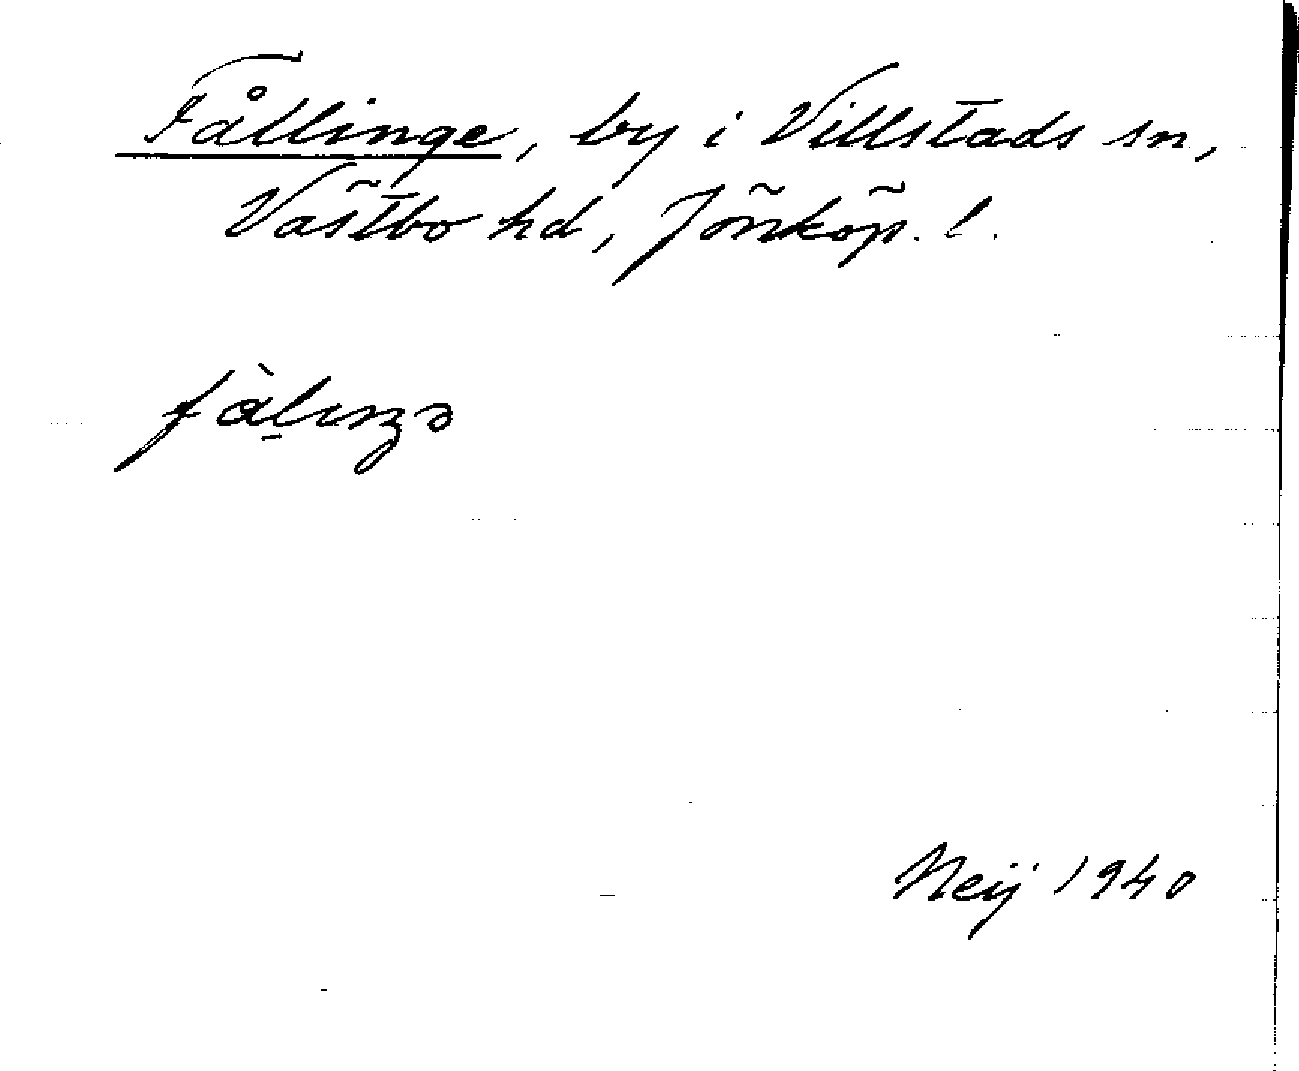 Fållinge, by i Villstads sn,
Västbo hd, Jönköp. l.
fàlıŋə
Neij 1940